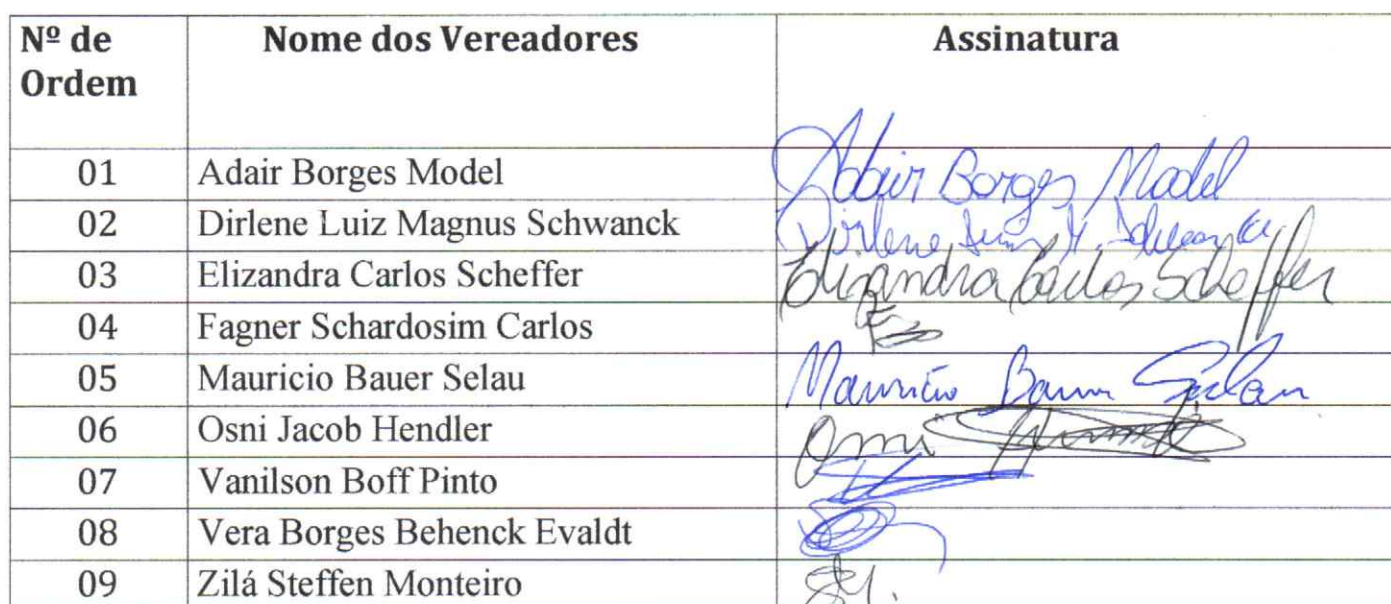 Nº de Ordem Nome dos Vereadores Assinatura
01 Adair Borges Model Adair Borges Model
02 Dirlene Luiz Magnus Schwanck Dirlene Luiz M. Schwanck
03 Elizandra Carlos Scheffer Elizandra Carlos Scheffer
04 Fagner Schardosim Carlos
05 Mauricio Bauer Selau Mauricio Bauer Selau
06 Osni Jacob Hendler Osni
07 Vanilson Boff Pinto
08 Vera Borges Behenck Evaldt
09 Zilá Steffen Monteiro